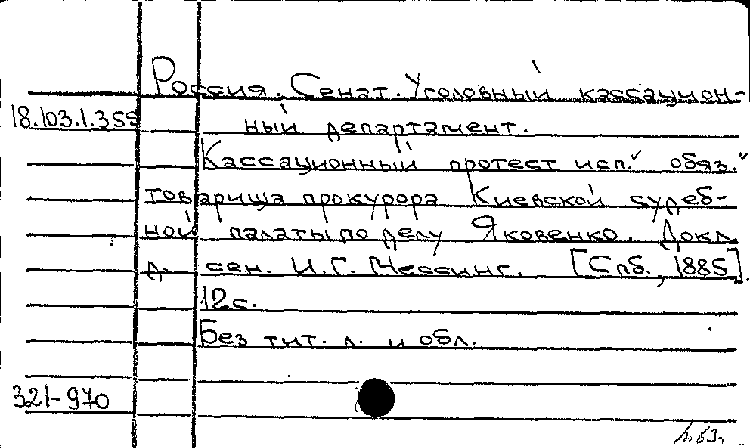 Россия. Сенат. Уголовный кассацион-
18.103.1.355 ный департамент.
Кассационный протест исп. обяз.
товарища прокурора Киевской судеб-
ной палаты по делу Яковенко. Докл.
д. сен. И.Г. Мессинг. [Спб., 1885].
12с.
Без тит. л. и обл.
321-970